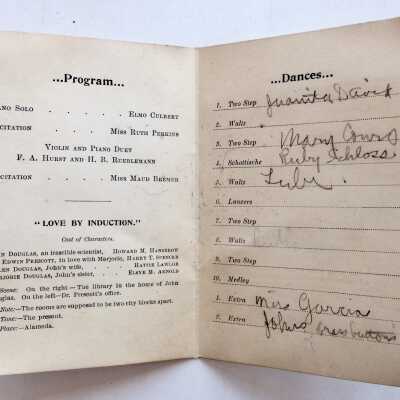 ...Program...
ANO SOLO . . . . . ELMO CULBERT
CITATION . . . . MISS RUTH PERKINS
VIOLIN AND PIANO DUET
F. A. HURST AND H. B. RUEBLEMANN
CITATION . . . . MISS MAUD BREMER
"LOVE BY INDUCTION."
Out of Characters.
N DOUGLAS, an irascible scientist, HOWARD M.
EDWIN PERRCOTT, in love with Marjorie, HARRY T. SPENCER
EN DOUGLAS, John's wife, . . . HATTIE LAWLOR
RJORIE DOUGLAS, John's sister, . . ELSYE M. ARNOLD
Scene: On the right—The library in the home of John
glas. On the left—Dr. Prescott's office.
Note.—The rooms are supposed to be two city blocks apart.
Time:—The present.
Place:—Alameda.
...Dances...
1. Two Step Juanita David
2. Waltz
3. Two Step Mary
4. Schottische Ruby Schloss
5. Waltz
6. Lanzers
7. Two Step
8. Waltz
9. Two Step
10. Medley
1. Extra Miss Garcia
2. Extra Johns Brass buttons